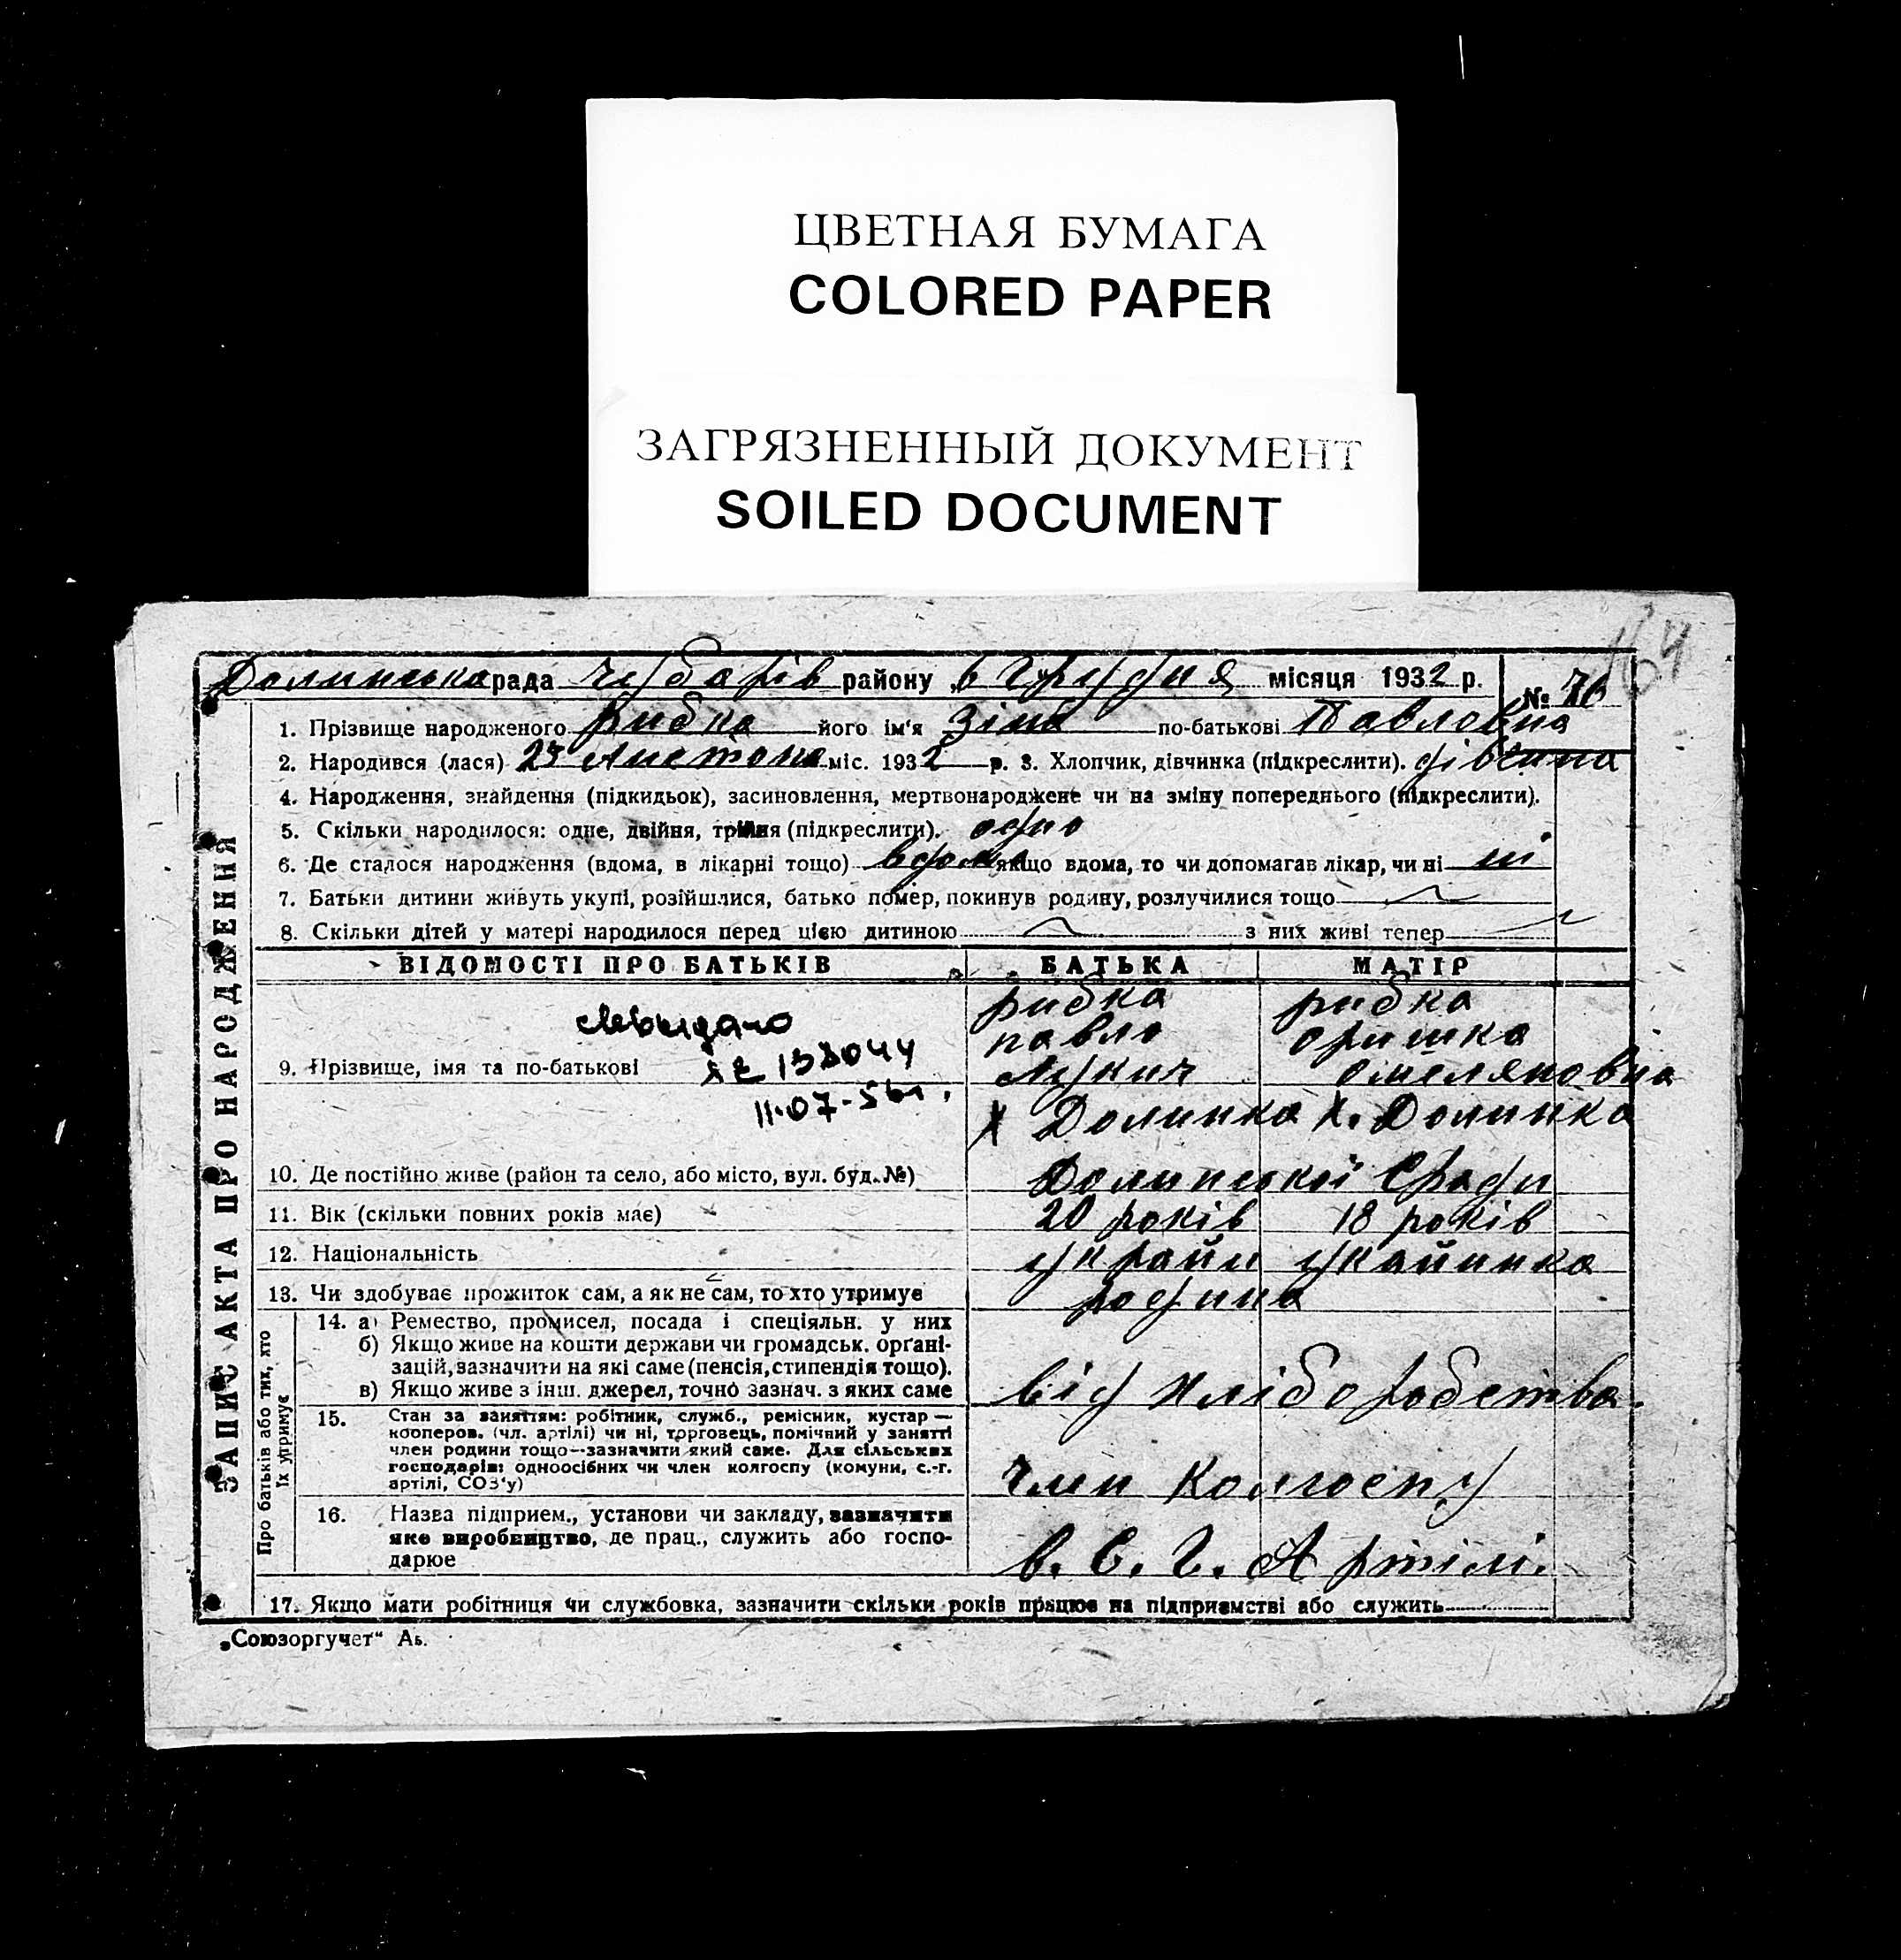 ЦВЕТНАЯ БУМАГА
COLORED PAPER
ЗАГРЯЗНЕННЫЙ ДОКУМЕНТ
SOILED DOCUMENT
164
Долинська рада Чубарів району 6 Грудня місяця 1932 р. № 76
ЗАПИС АКТА ПРО НАРОДЖЕННЯ
1. Прізвище народженого рибка його ім'я Зіна по-батькові Павловна
2. Народився (лася) 23 Листопа міс. 1932 р. 3. Хлопчик, дівчинка (підкреслити). дівчина
4. Народження, знайдення (підкидьок), засиновлення, мертвонароджене чи на зміну попереднього (підкреслити).
5. Скільки народилося: одне, двійня, трійня (підкреслити). одно
6. Де сталося народження (вдома, в лікарні тощо) вдома якщо вдома, то чи допомагав лікар, чи ні ні
7. Батьки дитини живуть укупі, розійшлися, батько помер, покинув родину, розлучилися тощо
8. Скільки дітей у матері народилося перед цією дитиною з них живі тепер
ВІДОМОСТІ ПРО БАТЬКІВ БАТЬКА МАТІР
рибка рибка
павло оришка
9. Прізвище, імя та по-батькові Лукич омеляновна
138044
11.07-56г.
х Долинка х. Долинка
10. Де постійно живе (район та село, або місто, вул. буд. №) Долинської Сради
11. Вік (скільки повних років має) 20 років 18 років
12. Національність украйи укайинка
13. Чи здобуває прожиток сам, а як не сам, то хто утримує родина
Про батьків або тих, хто
їх утримує
14. а) Ремество, промисел, посада і спеціяльн. у них
б) Якщо живе на кошти держави чи громадськ. орґані-
зацій, зазначити на які саме (пенсія, стипендія тощо).
в) Якщо живе з інш. джерел, точно зазнач. з яких саме від хліборобства.
15. Стан за заняттям: робітник, служб., ремісник, кустар —
кооперов. (чл. артілі) чи ні, торговець, помічний у занятті
член родини тощо—зазначити який саме. Для сільських
господарів: одноосібних чи член колгоспу (комуни, с.-г.
артілі, СОЗ'у) член колгоспу
16. Назва підприєм., установи чи закладу, зазначити
яке виробництво, де прац., служить або госпо-
дарює в. С. Г. Артілі.
17. Якщо мати робітниця чи службовка, зазначити скільки років працює на підприємстві або служить
„Союзоргучет“ Аь.